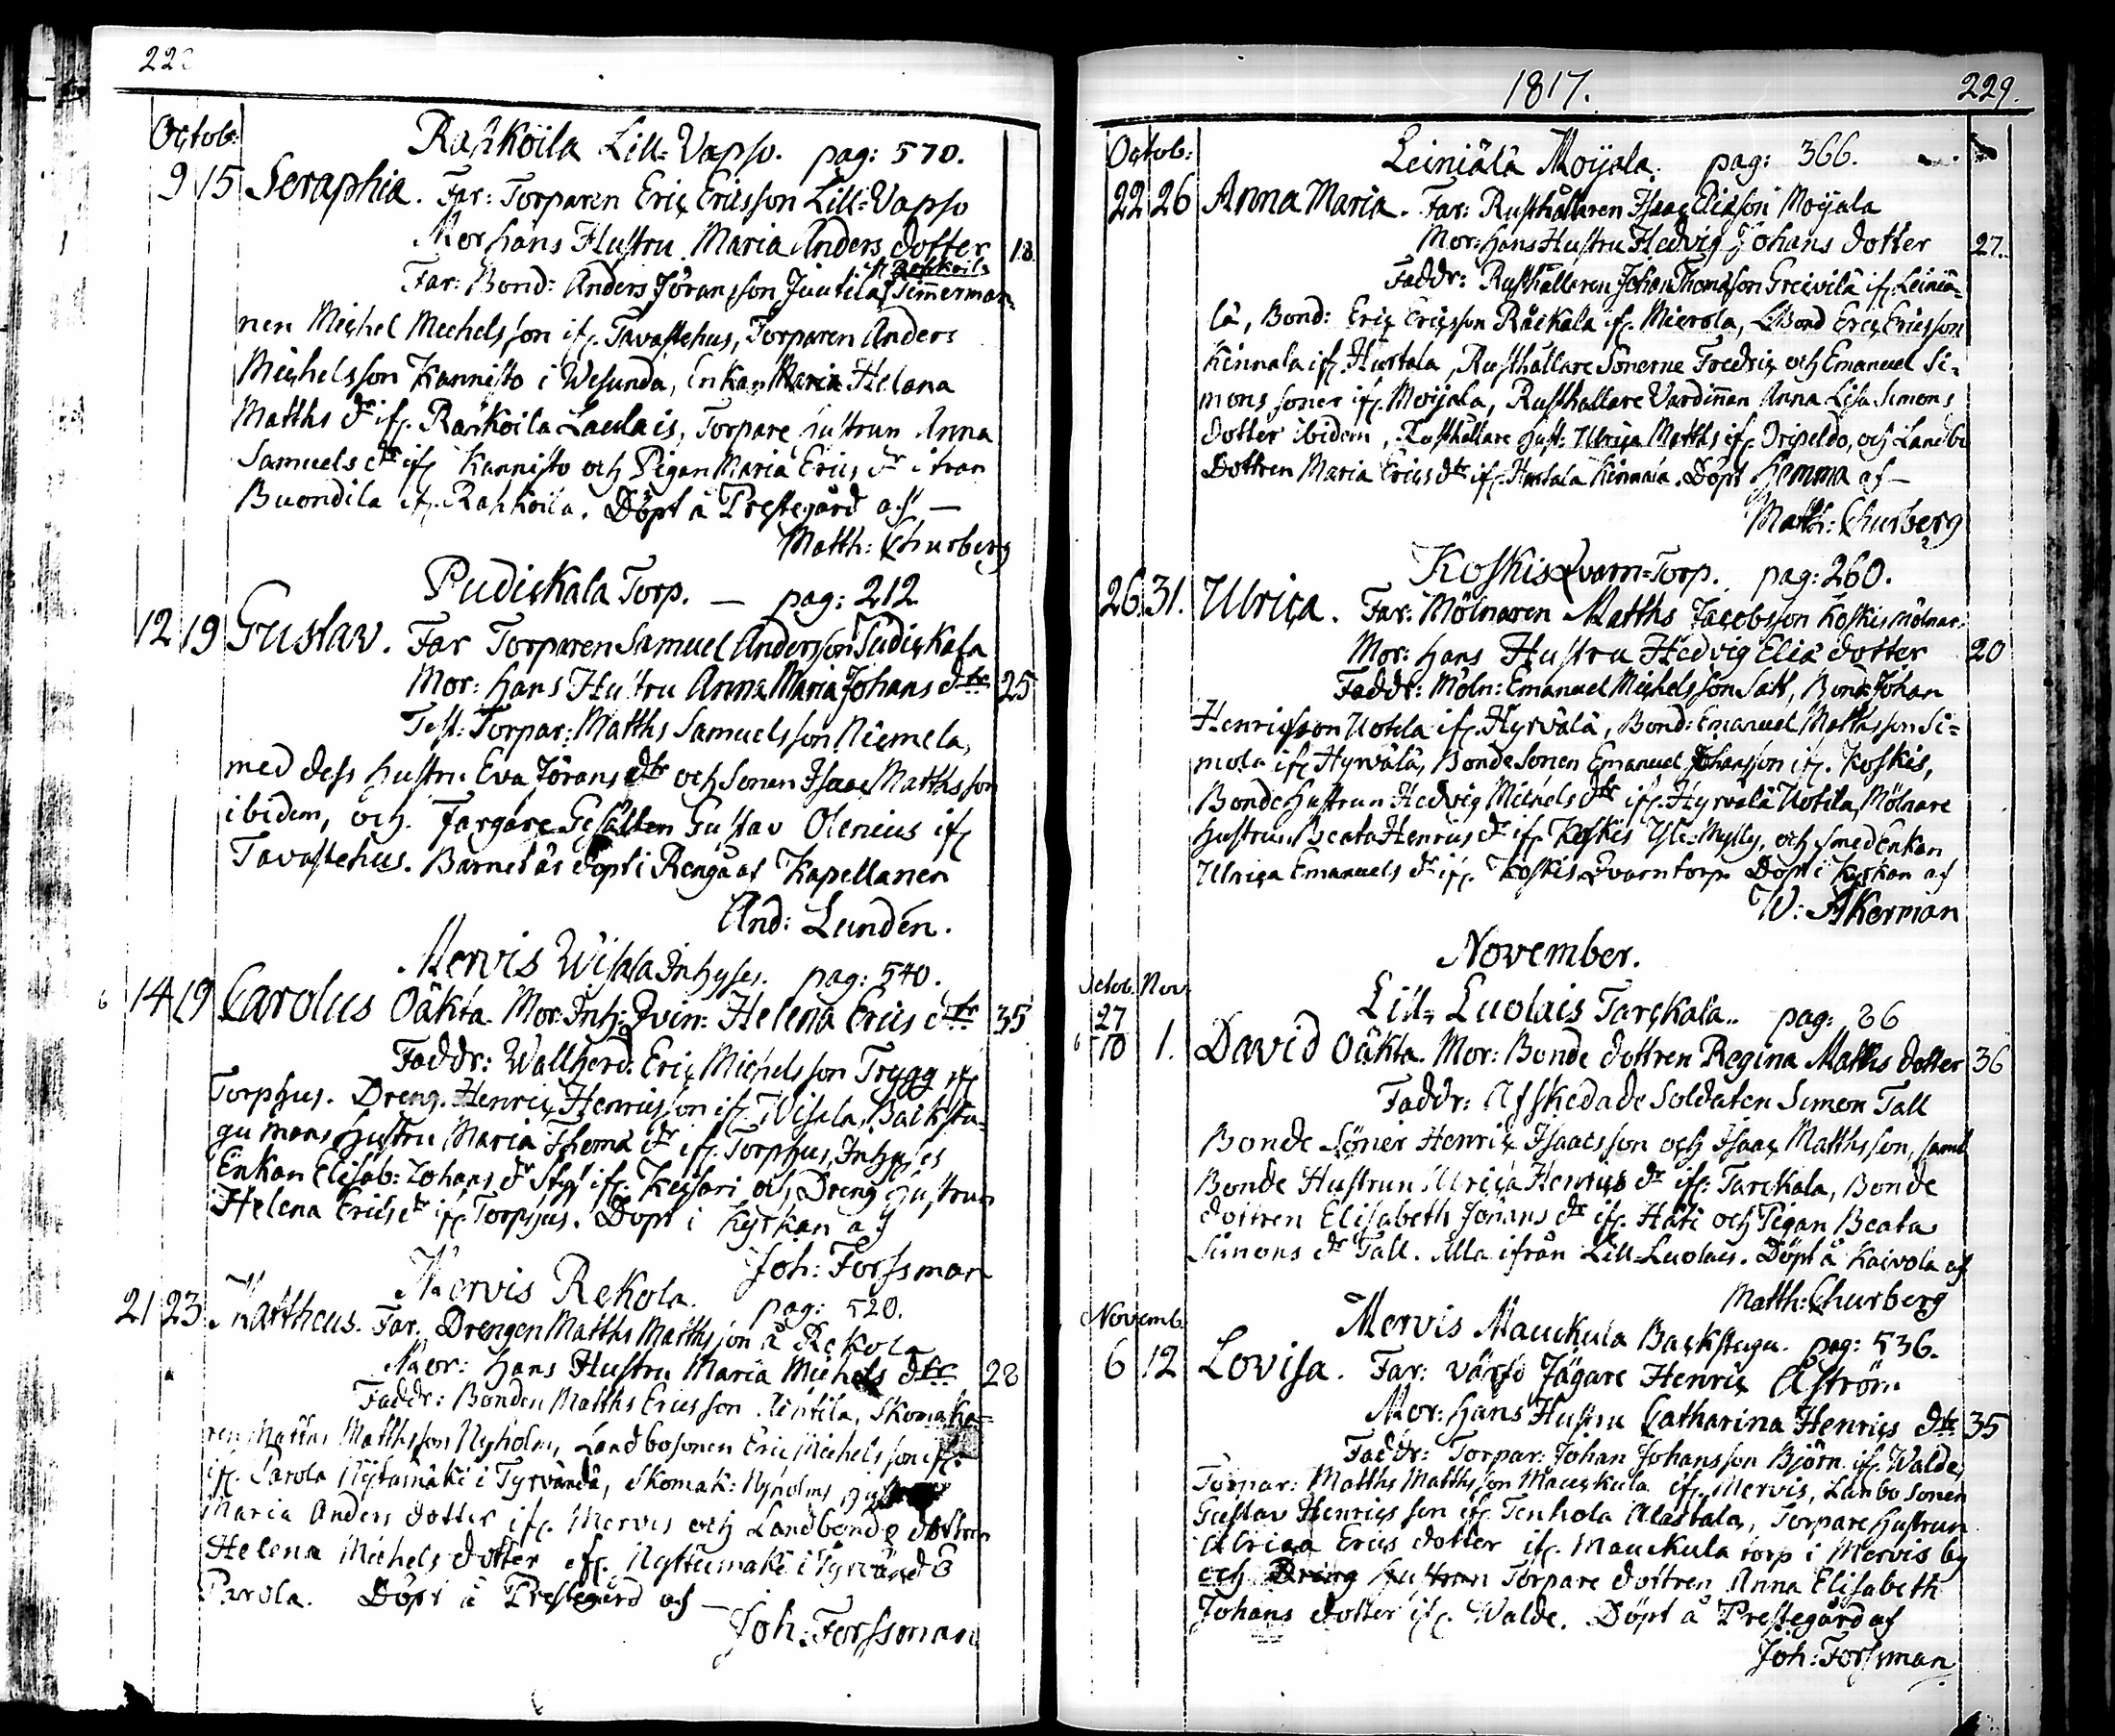 Octob:
Rahkoila Lill-Vapso. pag: 570.
9 15 Seraphia. Far: Torparen Eric Ericsson Lill-Vapso
Mor hans Hustru Maria Anders dotter 18
Far: Bond: Anders Jöransson Juutila if Rahkoila Timmerman-
nen Michel Michelsson if. Tavastehus, Torparen Anders
Michelsson Kannisto i Wesunda, Enkan Maria Helena
Matths dr if. Rahkoila Laulais, Torpare hustrun Anna
Samuels dr if Kannisto och Pigan Maria Erics dr ifrån
Buondila if. Rahkoila. Döpt å Prestegård af —
Matth: Churberg
Pudickala Torp. — pag: 212
12 19 Gustav. Far Torparen Samuel Andersson Pudickala
Mor: hans Hustru Anna Maria Johans dtr 25
Test: Torpar: Matths Samuelsson Niemela,
med dess hustru Eva Jörans dtr och Sonen Isaac Matthsson
ibidem, och Färgare Gesällen Gustav Olenius if
Tavastehus. Barnet är döpt i Renga af Kapellanen
And: Lundén.
Mervis Wisala Inhyses. pag: 540.
6 14 19 Carolus Oäkta. Mor: Inh: Qvin: Helena Erics dtr 35
Faddr: Wallherd: Eric Michelsson Trygg if
Torphus. Dreng. Henric Henricsson if. Wisala, Backstu-
gu mans Hustru Maria Thoma dr if. Torphus, Inhyses
Enkan Elisab: Johans dr if. Keisari och Dreng hustrun
Helena Erics dr if. Torphus. Döpt i Kyrkan af
Joh: Forssman
Mervis Rekola. pag: 520.
21 23 Mattheus. Far. Drengen Matths Matthsson å Rekola
Mor: hans Hustru Maria Michels dtr 28
Faddr: Bonden Matths Ericsson Äntila, Skomaka-
ren Matths Matthsson Nyholm, Landbosonen Eric Michelsson if.
if. Parola Nyttumäki i Tyrvändö, Skomak: Nyholms
Maria Anders dotter if. Mervis och Landbonde dottren
Helena Michels dotter if. Nyttumäki i Tyrvändö
Parola. Döpt å Prestegård af —
Joh: Forssman
1817. 229.
Octob:
Leiniälä Moijala. pag: 366.
22 26 Anna Maria. Far: Rusthållaren Isaac Eliason Moijala
Mor: hans Hustru Hedvig Johans dotter 27
Faddr: Rusthållaren Johan Thomasson Greivilä if. Leiniä-
lä, Bond: Eric Ericsson Räikälä if. Mierola, LBond Eric Ericsson
Kinnala if. Hurtala, Rusthållare Sönerne Fredric och Emanuel Si-
mons söner if. Moijala, Rusthållare Värdinnan Anna Lisa Simons
dotter ibidem, Rusthållare hust: Ulrica Matths if. och Landbo
Dottren Maria Erics dtr if. Hurtala Kinnala. Döpt hemma af —
Matth: Churberg
Koskis Qvarn-Torp. pag: 260.
26 31. Ulrica. Far: Mölnaren Matths Jacobsson Koskis mölnar:
Mor: hans Hustru Hedvig Elia dotter 20
Faddr: Möln: Emanuel Michelsson Salt, Bond Johan
Henricsson Uotila if. Hyrvälä, Bond: Emanuel Matthsson Si-
mola if Hyrvälä, Bonde Sonen Emanuel Johansson if. Koskis,
Bonde Hustrun Hedvig Michels dtr if. Hyrvälä Uotila, Mölnare
hustrun Beata Henrics dr if. Koskis och Smed Enkan
Ulrica Emanuels dr if. Koskis Qvarntorp. Döpt i Kyrkan af
W: Åkerman
November.
Octob. Nov:
Lill-Luolais Tarckala. pag: 86
27 6 10 1. David Oäkta. Mor: Bonde dottren Regina Matths dotter 36
Faddr: Afskedade Soldaten Simon Tall
Bonde Söner Henric Isaacsson och Isaac Matthsson, samt
Bonde Hustrun Ulrica Henrics dr if. Tarckala, Bonde
dottren Elisabeth Jörans dr if. Häti och Pigan Beata
Simons dr Tall. Alla ifrån Lill-Luolais. Döpt å Kaivola af
Matth: Churberg
Novemb.
Mervis Mauckula Backstugu. pag: 536.
6 12 Lovisa. Far: Värfd Jägare Henric Åström
Mor: hans Hustru Catharina Henrics dtr 35
Faddr: Torpar: Johan Johansson Björn if. Walde,
Torpar: Matths Matthsson Mauckula if. Mervis, Lanbo Sonen
Gustav Henricsson if. Tenhola Alastalo, Torpare hustrun
Ulrica Erics dotter if. Mauckula torp i Mervis by
och Dräng hustrun Torpare dottren Anna Elisabeth
Johans dotter if. Walde. Döpt å Prestegård af
Joh: Forssman